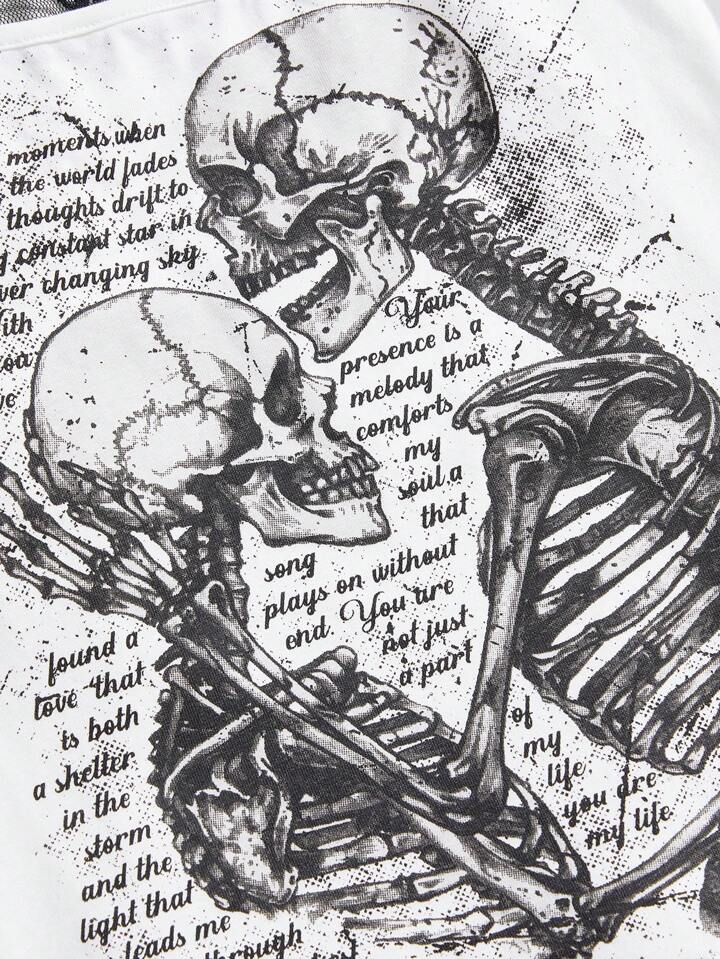 moments when
the world fades
thoughts drift to
constant star in
changing sky
Your
presence is a
melody that
comforts
my
soul a
that
song
plays on without
end. You are
not just
a part
of
my
life,
you are
my life
found a
love that
is both
a shelter
in the
storm
and the
light that
leads me
through